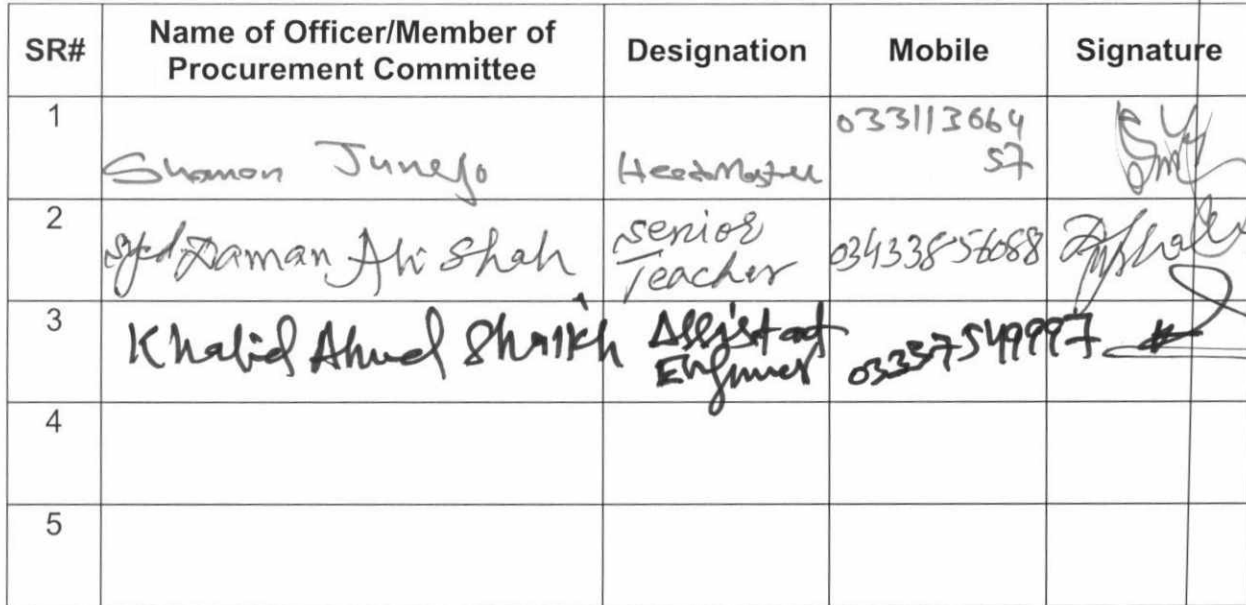 SR# Name of Officer/Member of Procurement Committee Designation Mobile Signature
1 Shaman Junejo HeadMaster 03311366457
2 Syed Zaman Ali Shah Senior Teacher 03433856088
3 Khalid Ahmed Shaikh Assistant Engineer 03337549997
4
5